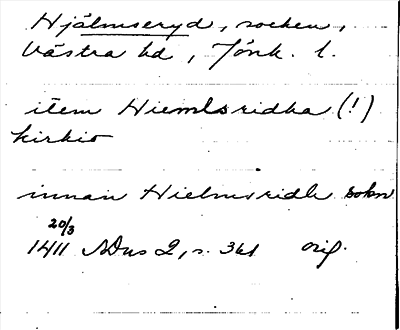 Hjälmseryd, socken,
Västra hd, Jönk. l.
item Hiemlsridha (!)
kirkio
innan Hielmsridh sokn
20/3
1411 NDns 2, s. 361 orig.